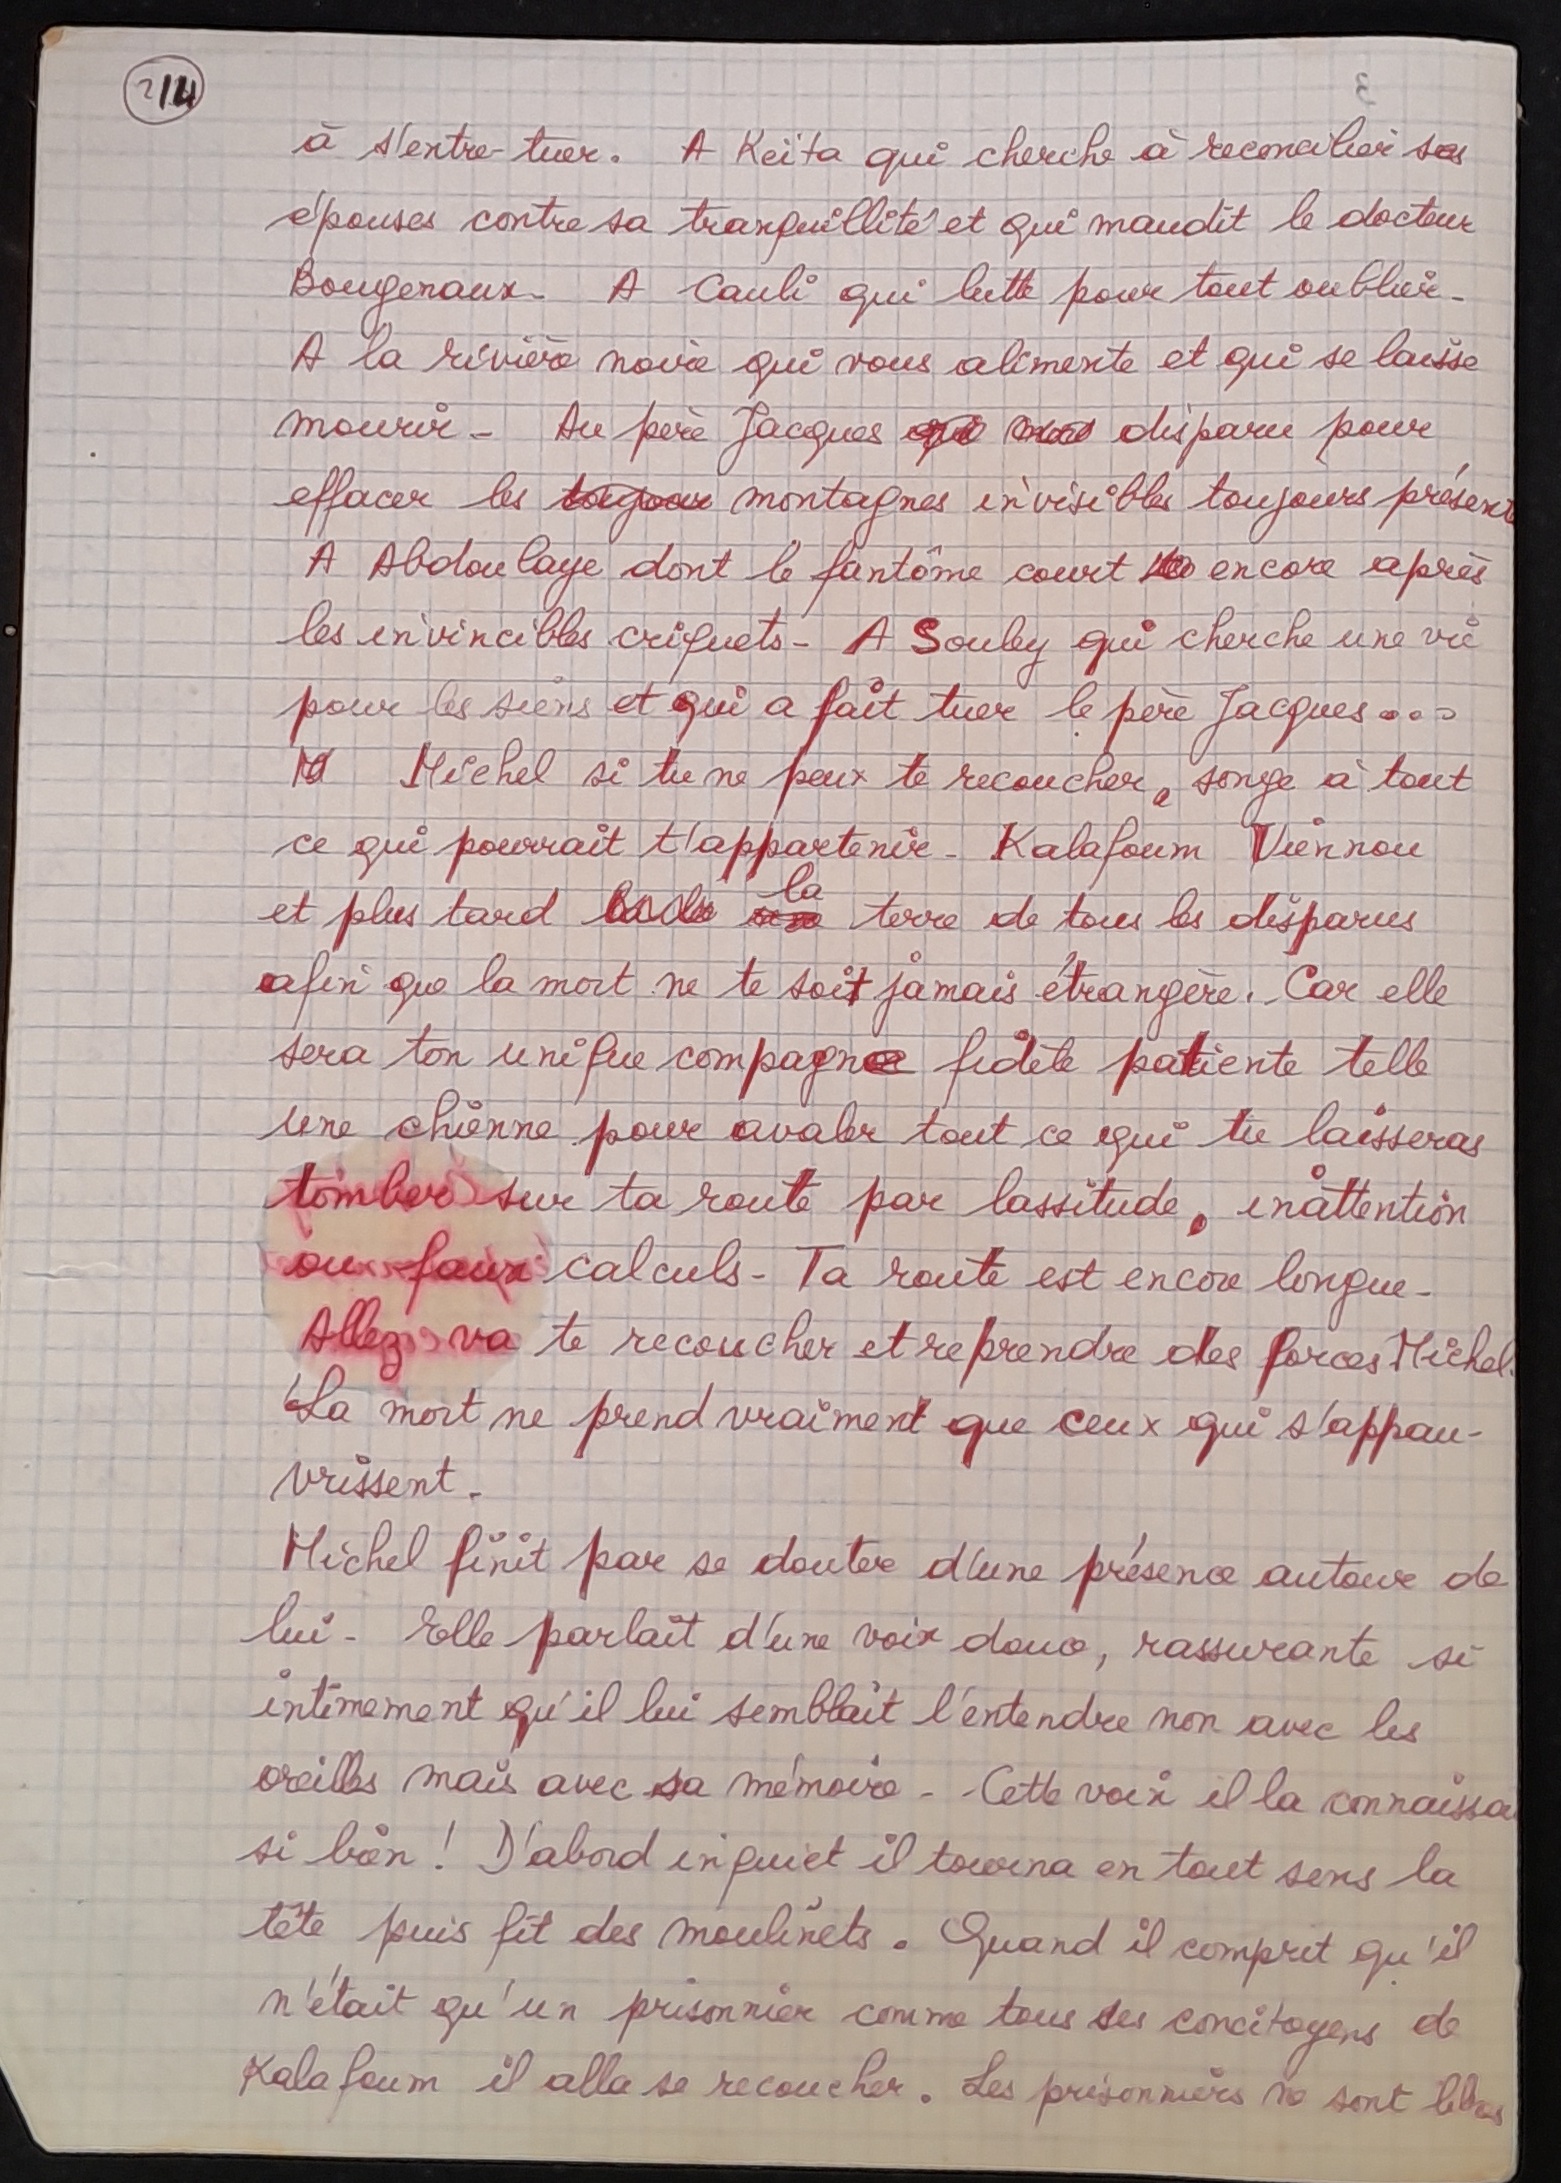 214
à s'entre-tuer. A Keïta qui cherche à reconcilier ses
épouses contre sa tranquillité et qui maudit le docteur
Bougenaux. A Cauli qui lutte pour tout oublier.
A la rivière noire qui vous alimente et qui se laisse
mourir. Au père Jacques disparu pour
effacer les toujours montagnes invisibles toujours présent
A Abdoulaye dont le fantôme court encore après
les invincibles criquets. A Souley qui cherche une vie
pour les siens et qui a fait tuer le père Jacques...
Michel si tu ne peux te recoucher, songe à tout
ce qui pourrait t'appartenir. Kalafoum Viennou
et plus tard la terre de tous les disparus
afin que la mort ne te soit jamais étrangère. Car elle
sera ton unique compagne fidèle patiente telle
une chienne pour avaler tout ce qui tu laisseras
tomber sur ta route par lassitude, inattention
ou faux calculs. Ta route est encore longue.
Allez va te recoucher et reprendre des forces Michel.
La mort ne prend vraiment que ceux qui s'appau-
vrissent.
Michel finit par se douter d'une présence autour de
lui. Elle parlait d'une voix douce, rassurante si
intimement qu'il lui semblait l'entendre non avec les
oreilles mais avec sa mémoire. Cette voix il la connaissa
si bien ! D'abord inquiet il tourna en tout sens la
tête puis fit des moulinets. Quand il comprit qu'il
n'était qu'un prisonnier comme tous ses concitoyens de
Kalafoum il alla se recoucher. Les prisonniers ne sont libres